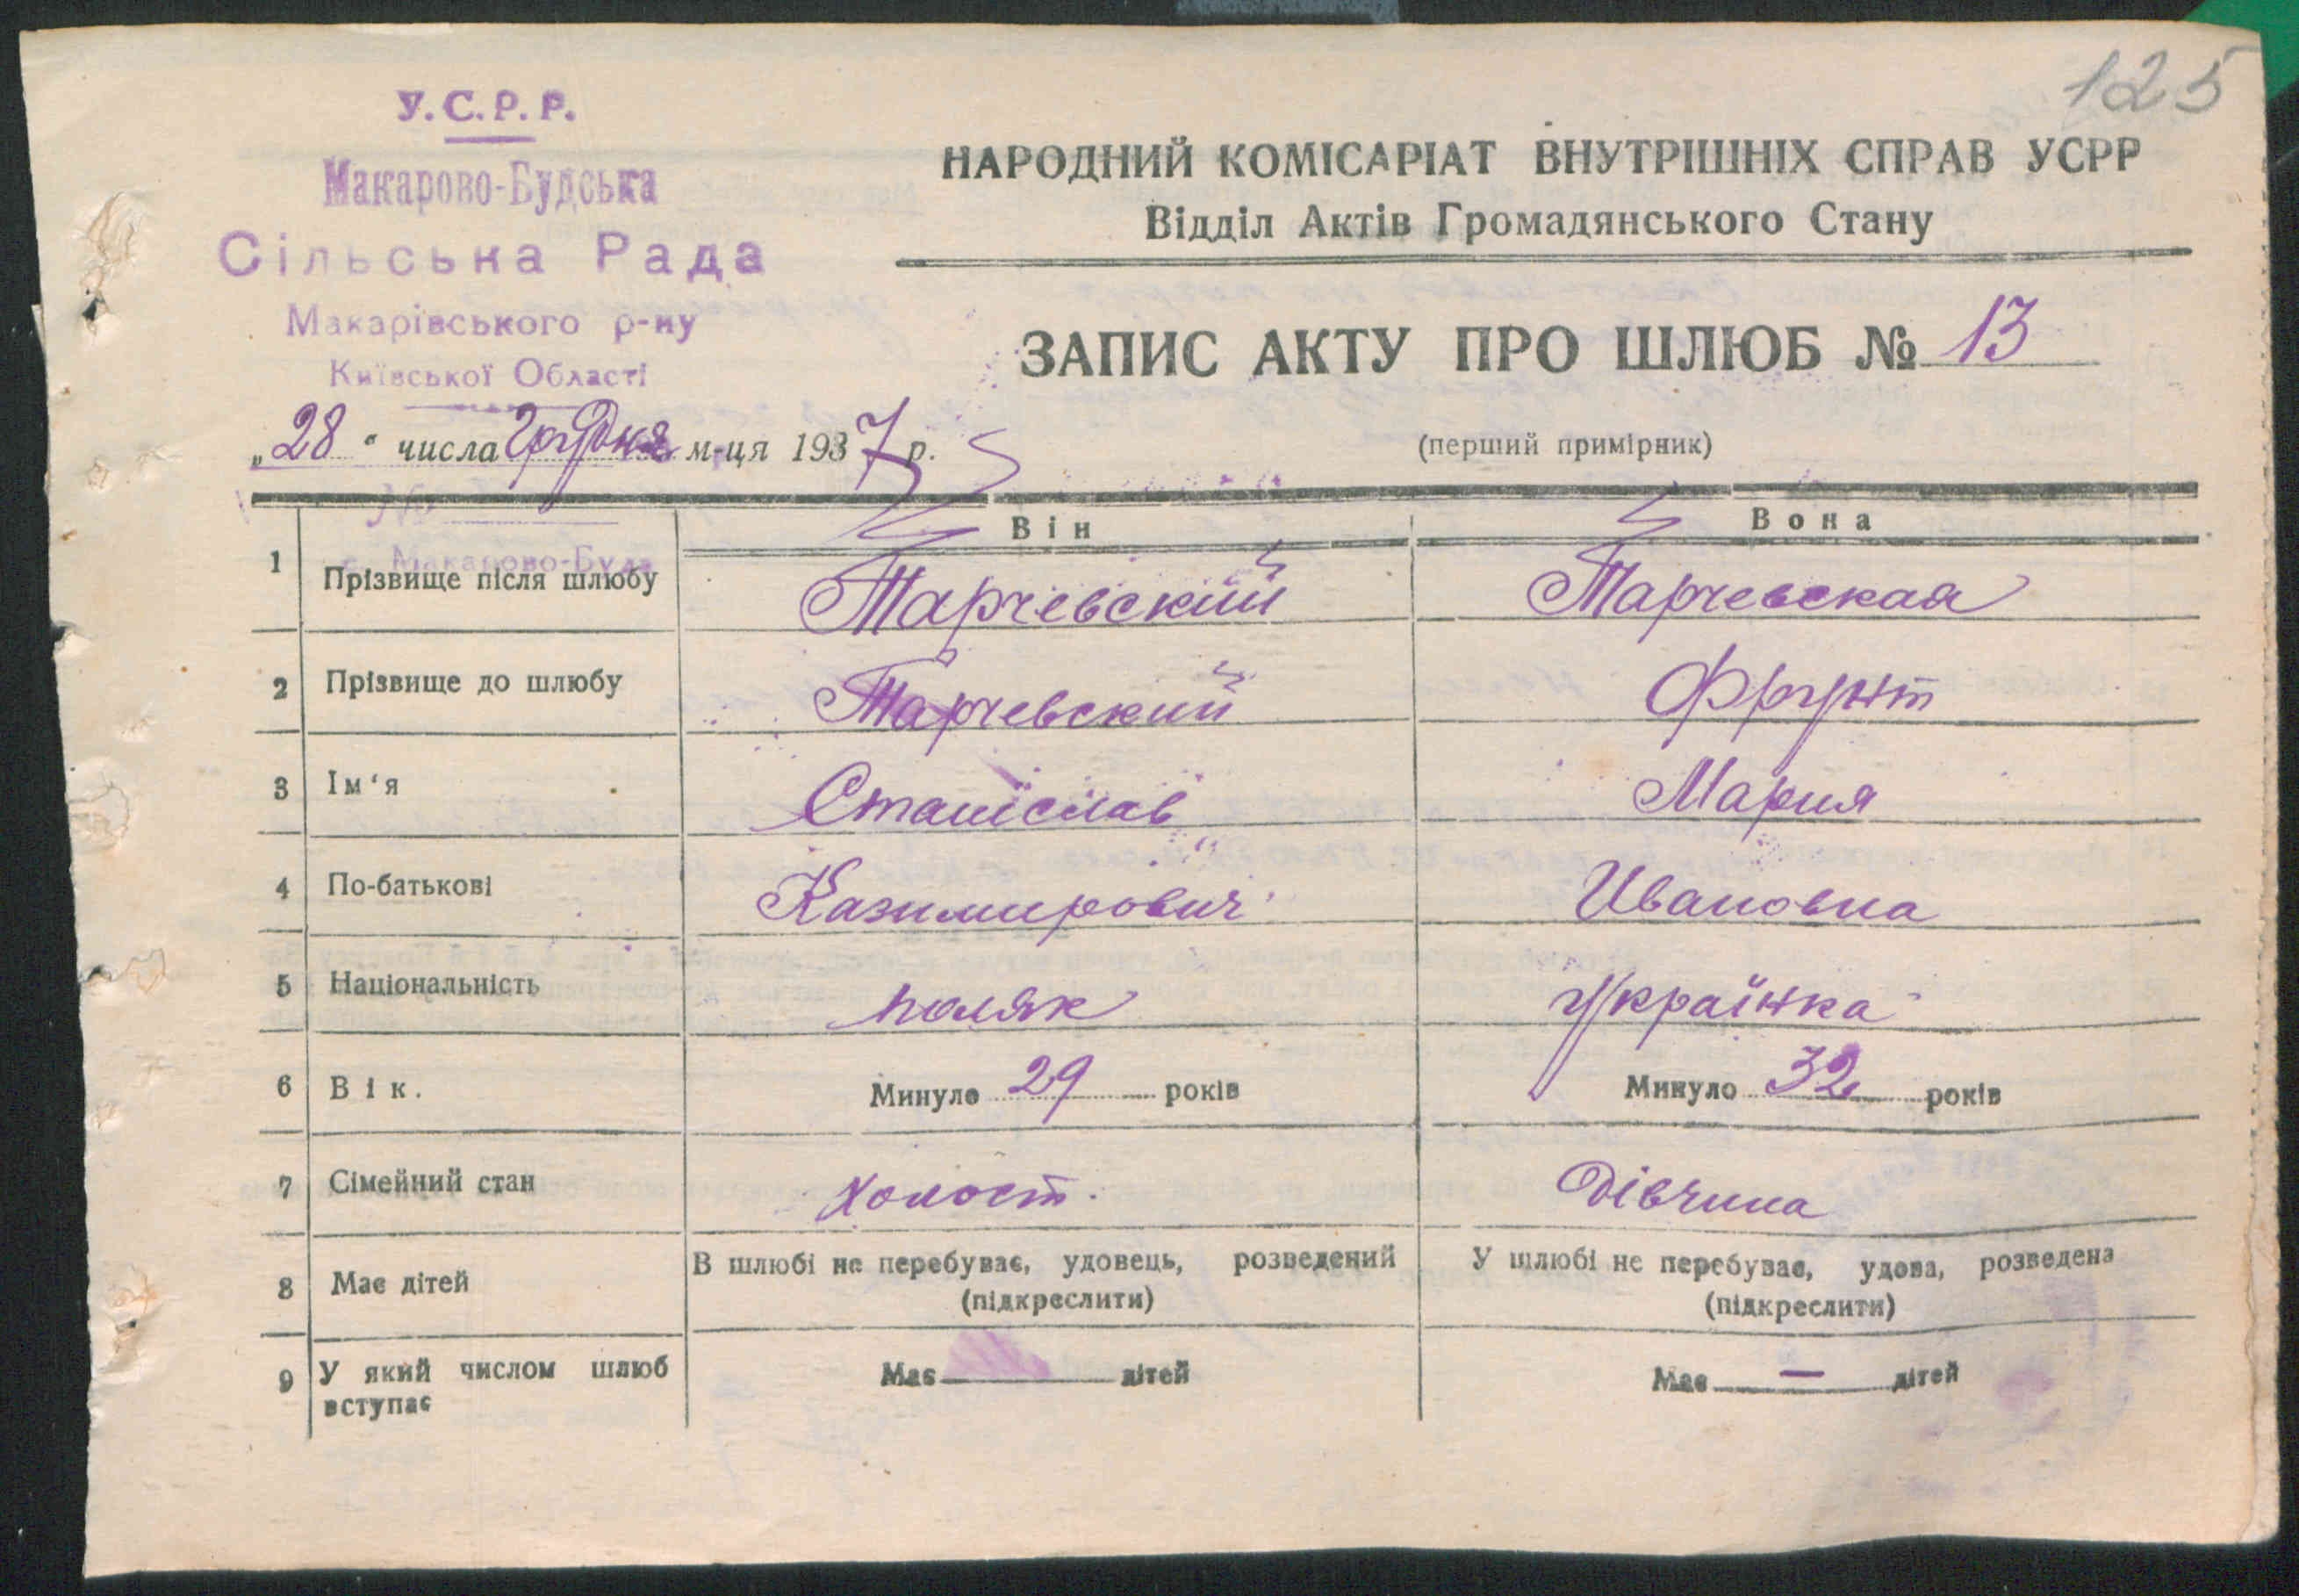 125
У.С.Р.Р.
Макарово-Будська
Сільська Рада
Макарівського р-ну
Київської Області
„28“ числа Грудня м-ця 1937 р.
№
с. Макарово-Буда
НАРОДНИЙ КОМІСАРІАТ ВНУТРІШНІХ СПРАВ УСРР
Відділ Актів Громадянського Стану
ЗАПИС АКТУ ПРО ШЛЮБ № 13
(перший примірник)
Він Вона
1 Прізвище після шлюбу Тарчевский Тарчевская
2 Прізвище до шлюбу Тарчевский Фрунт
3 Ім‘я Станіслав Мария
4 По-батькові Казимирович Ивановна
5 Національність поляк Українка
6 Вік. Минуло 29 років Минуло 32 років
7 Сімейний стан холост. Дівчина
8 Має дітей В шлюбі не перебуває, удовець, розведений (підкреслити) У шлюбі не перебуває, удова, розведена (підкреслити)
9 У який числом шлюб вступає Має дітей Має — дітей